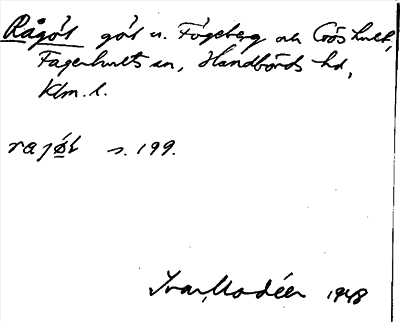 Rågöl göl u. Fögeberg och Croshult,
Fagerhults sn, Handbörds hd,
Klm. l.
rajø̀l s. 199.
Ivar Modéer 1948